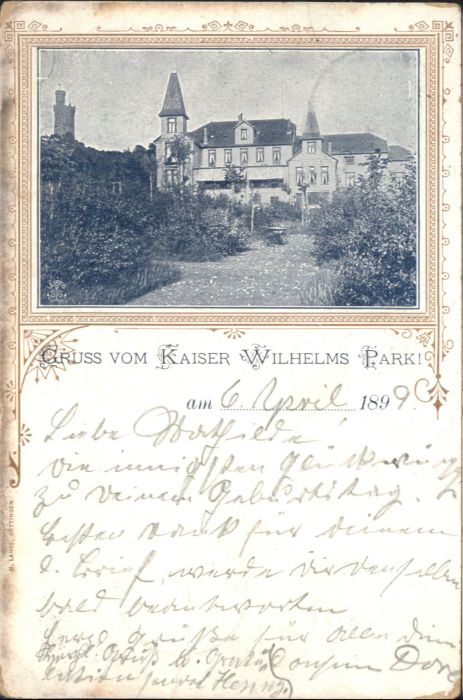 GRUSS VOM KAISER WILHELMS PARK!
am 6. April 1899.
Liebe Mathilde!
die innigsten Glückwün
zu deinem Geburtstag.
besten Dank für deinen
l. Brief, werde dir denselben
bald beantworten
herzl. Grüße für alle dein
Herzl. Gruß u. Cousine Dor
H. LANGE, GÖTTINGEN